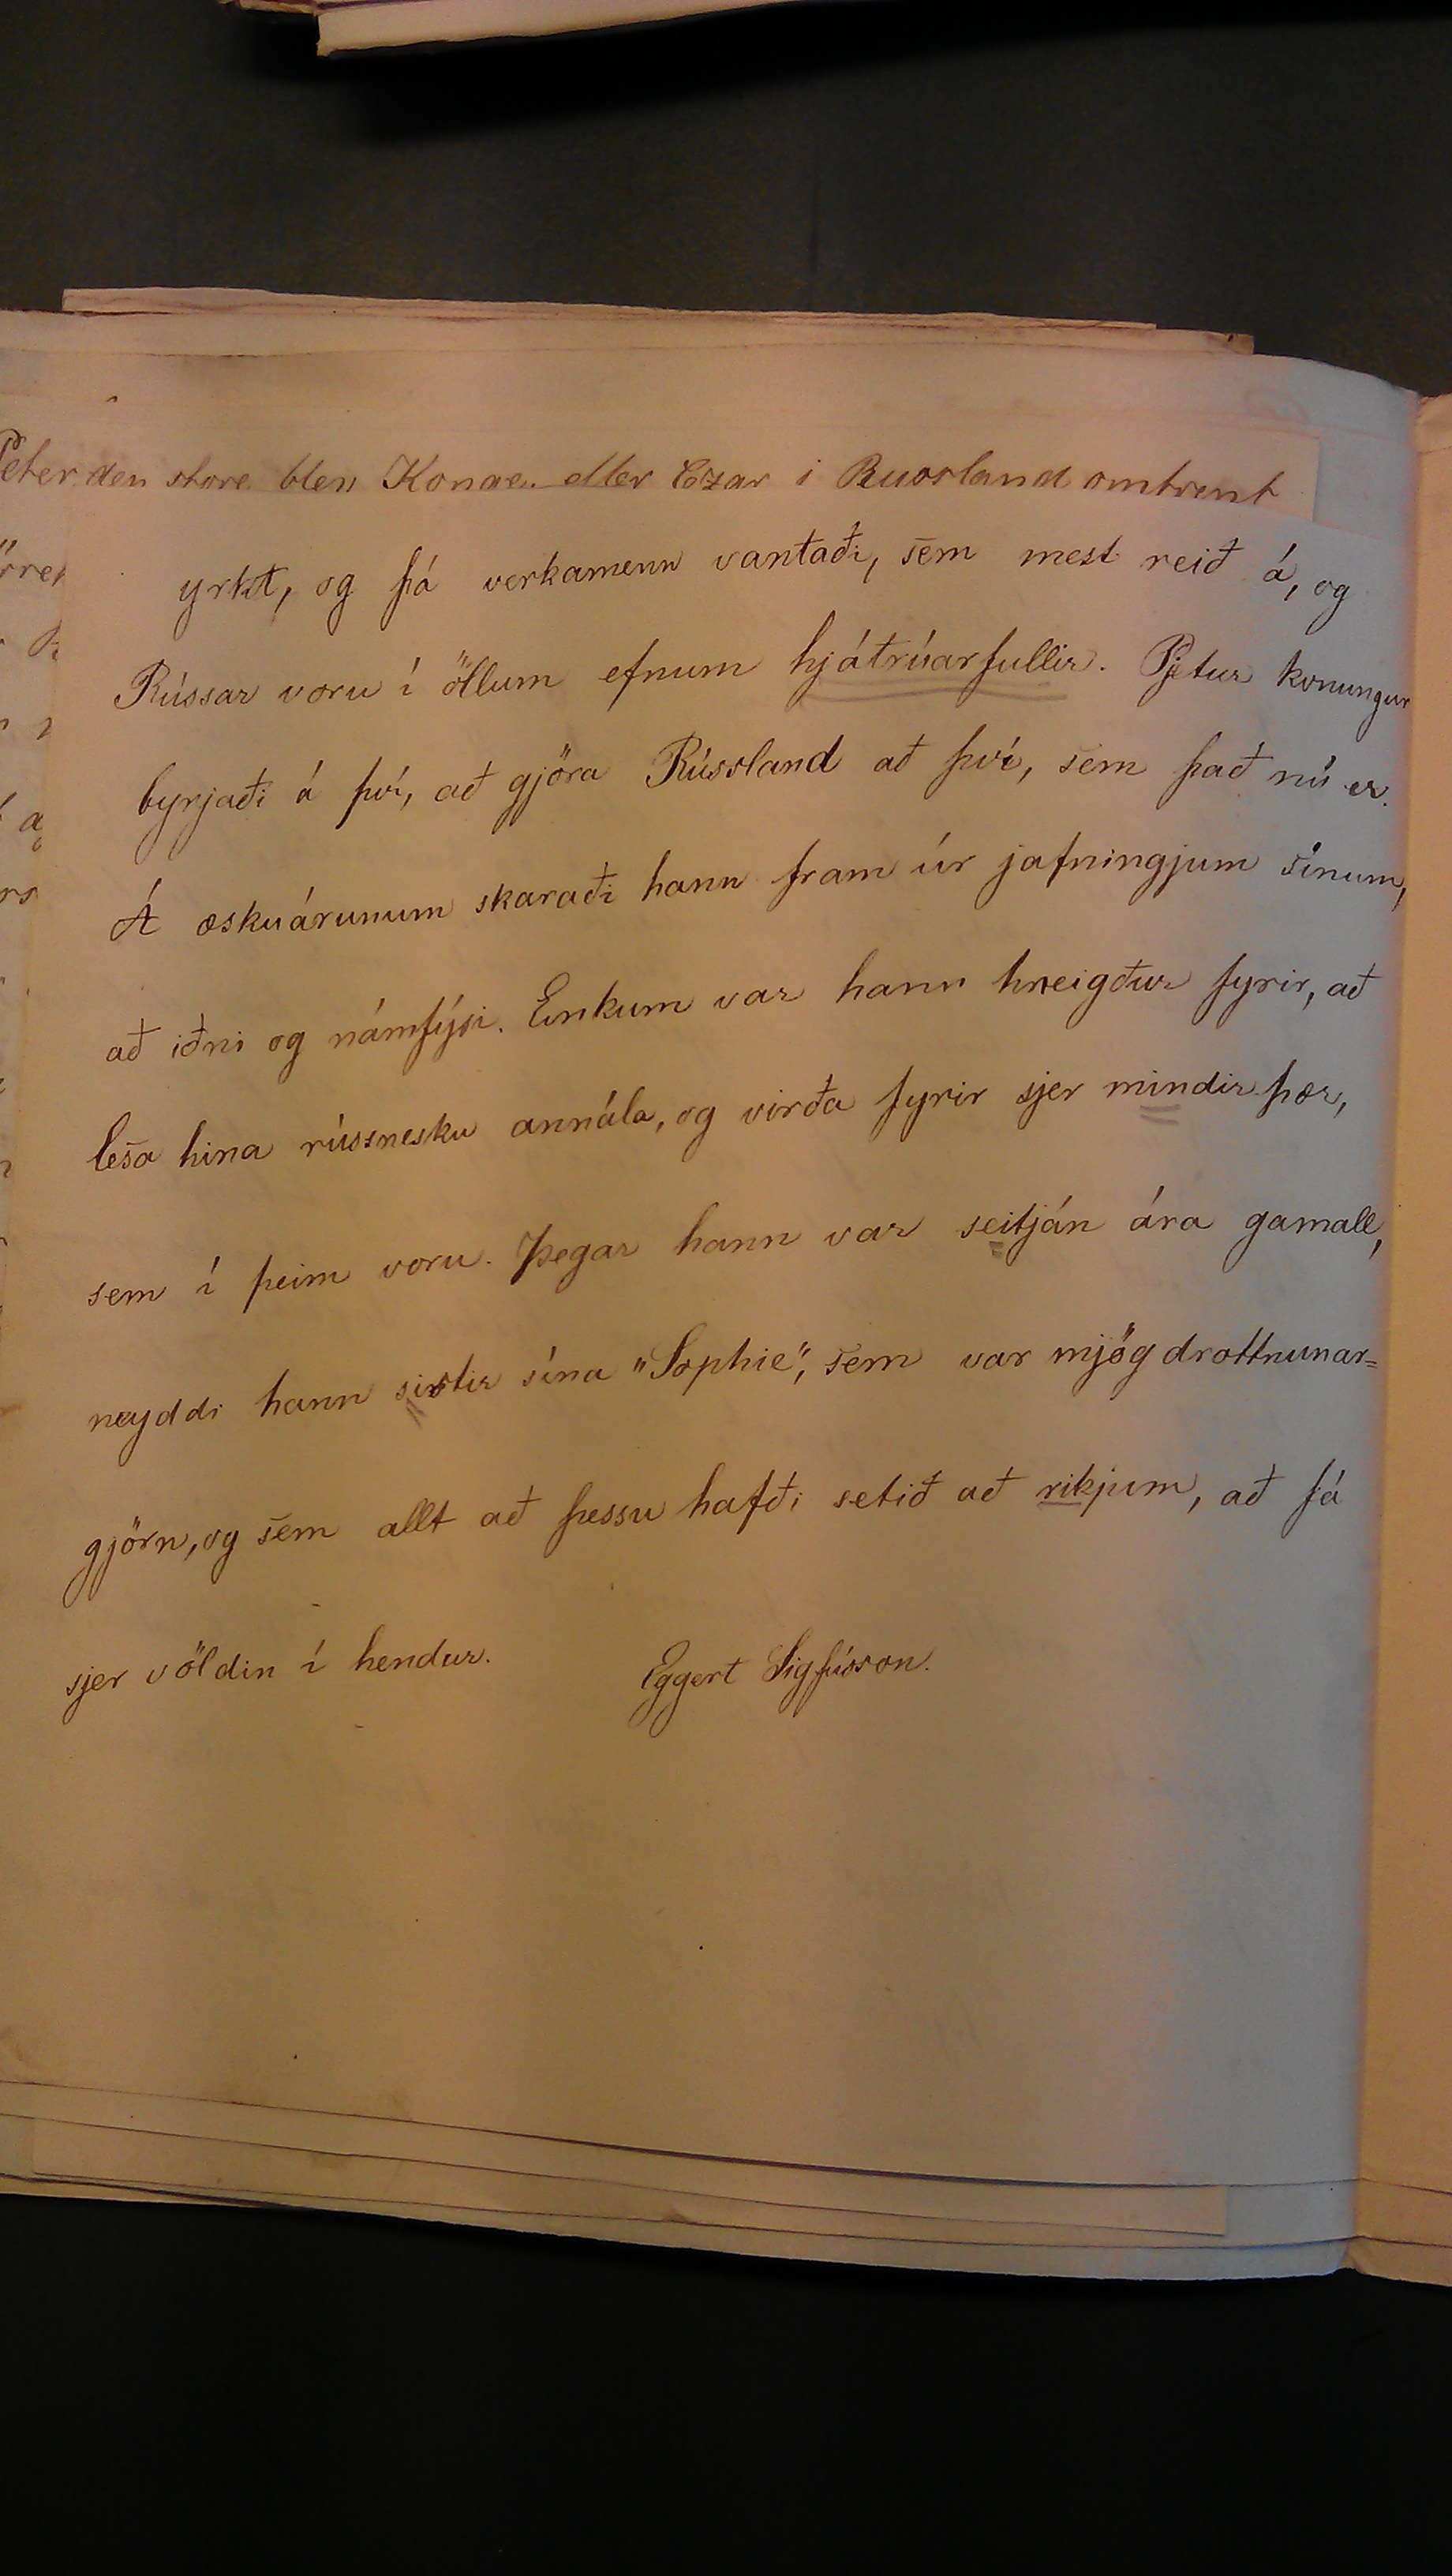 Peter den store blev Konge eller Czar i Russland omtrent
yrkt, og þá verkamenn vantaði, sem mest reið á, og
Rússar voru í öllum efnum hjátrúarfullir. Pjetur konungur
byrjaði á því, að gjöra Rússland að því, sem það nú er.
Á æskuárunum skaraði hann fram úr jafningjum sínum,
að iðni og námfýsi. Einkum var hann hneigður fyrir, að
lesa hina rússnesku annála, og virða fyrir sjer mindir þær,
sem í þeim voru. Þegar hann var seitján ára gamall,
neyddi hann sistir sína "Sophie", sem var mjög drottnunar=
gjörn, og sem allt að þessu hafði setið að rikjum, að fá
sjer völdin í hendur. Eggert Sigfússon.